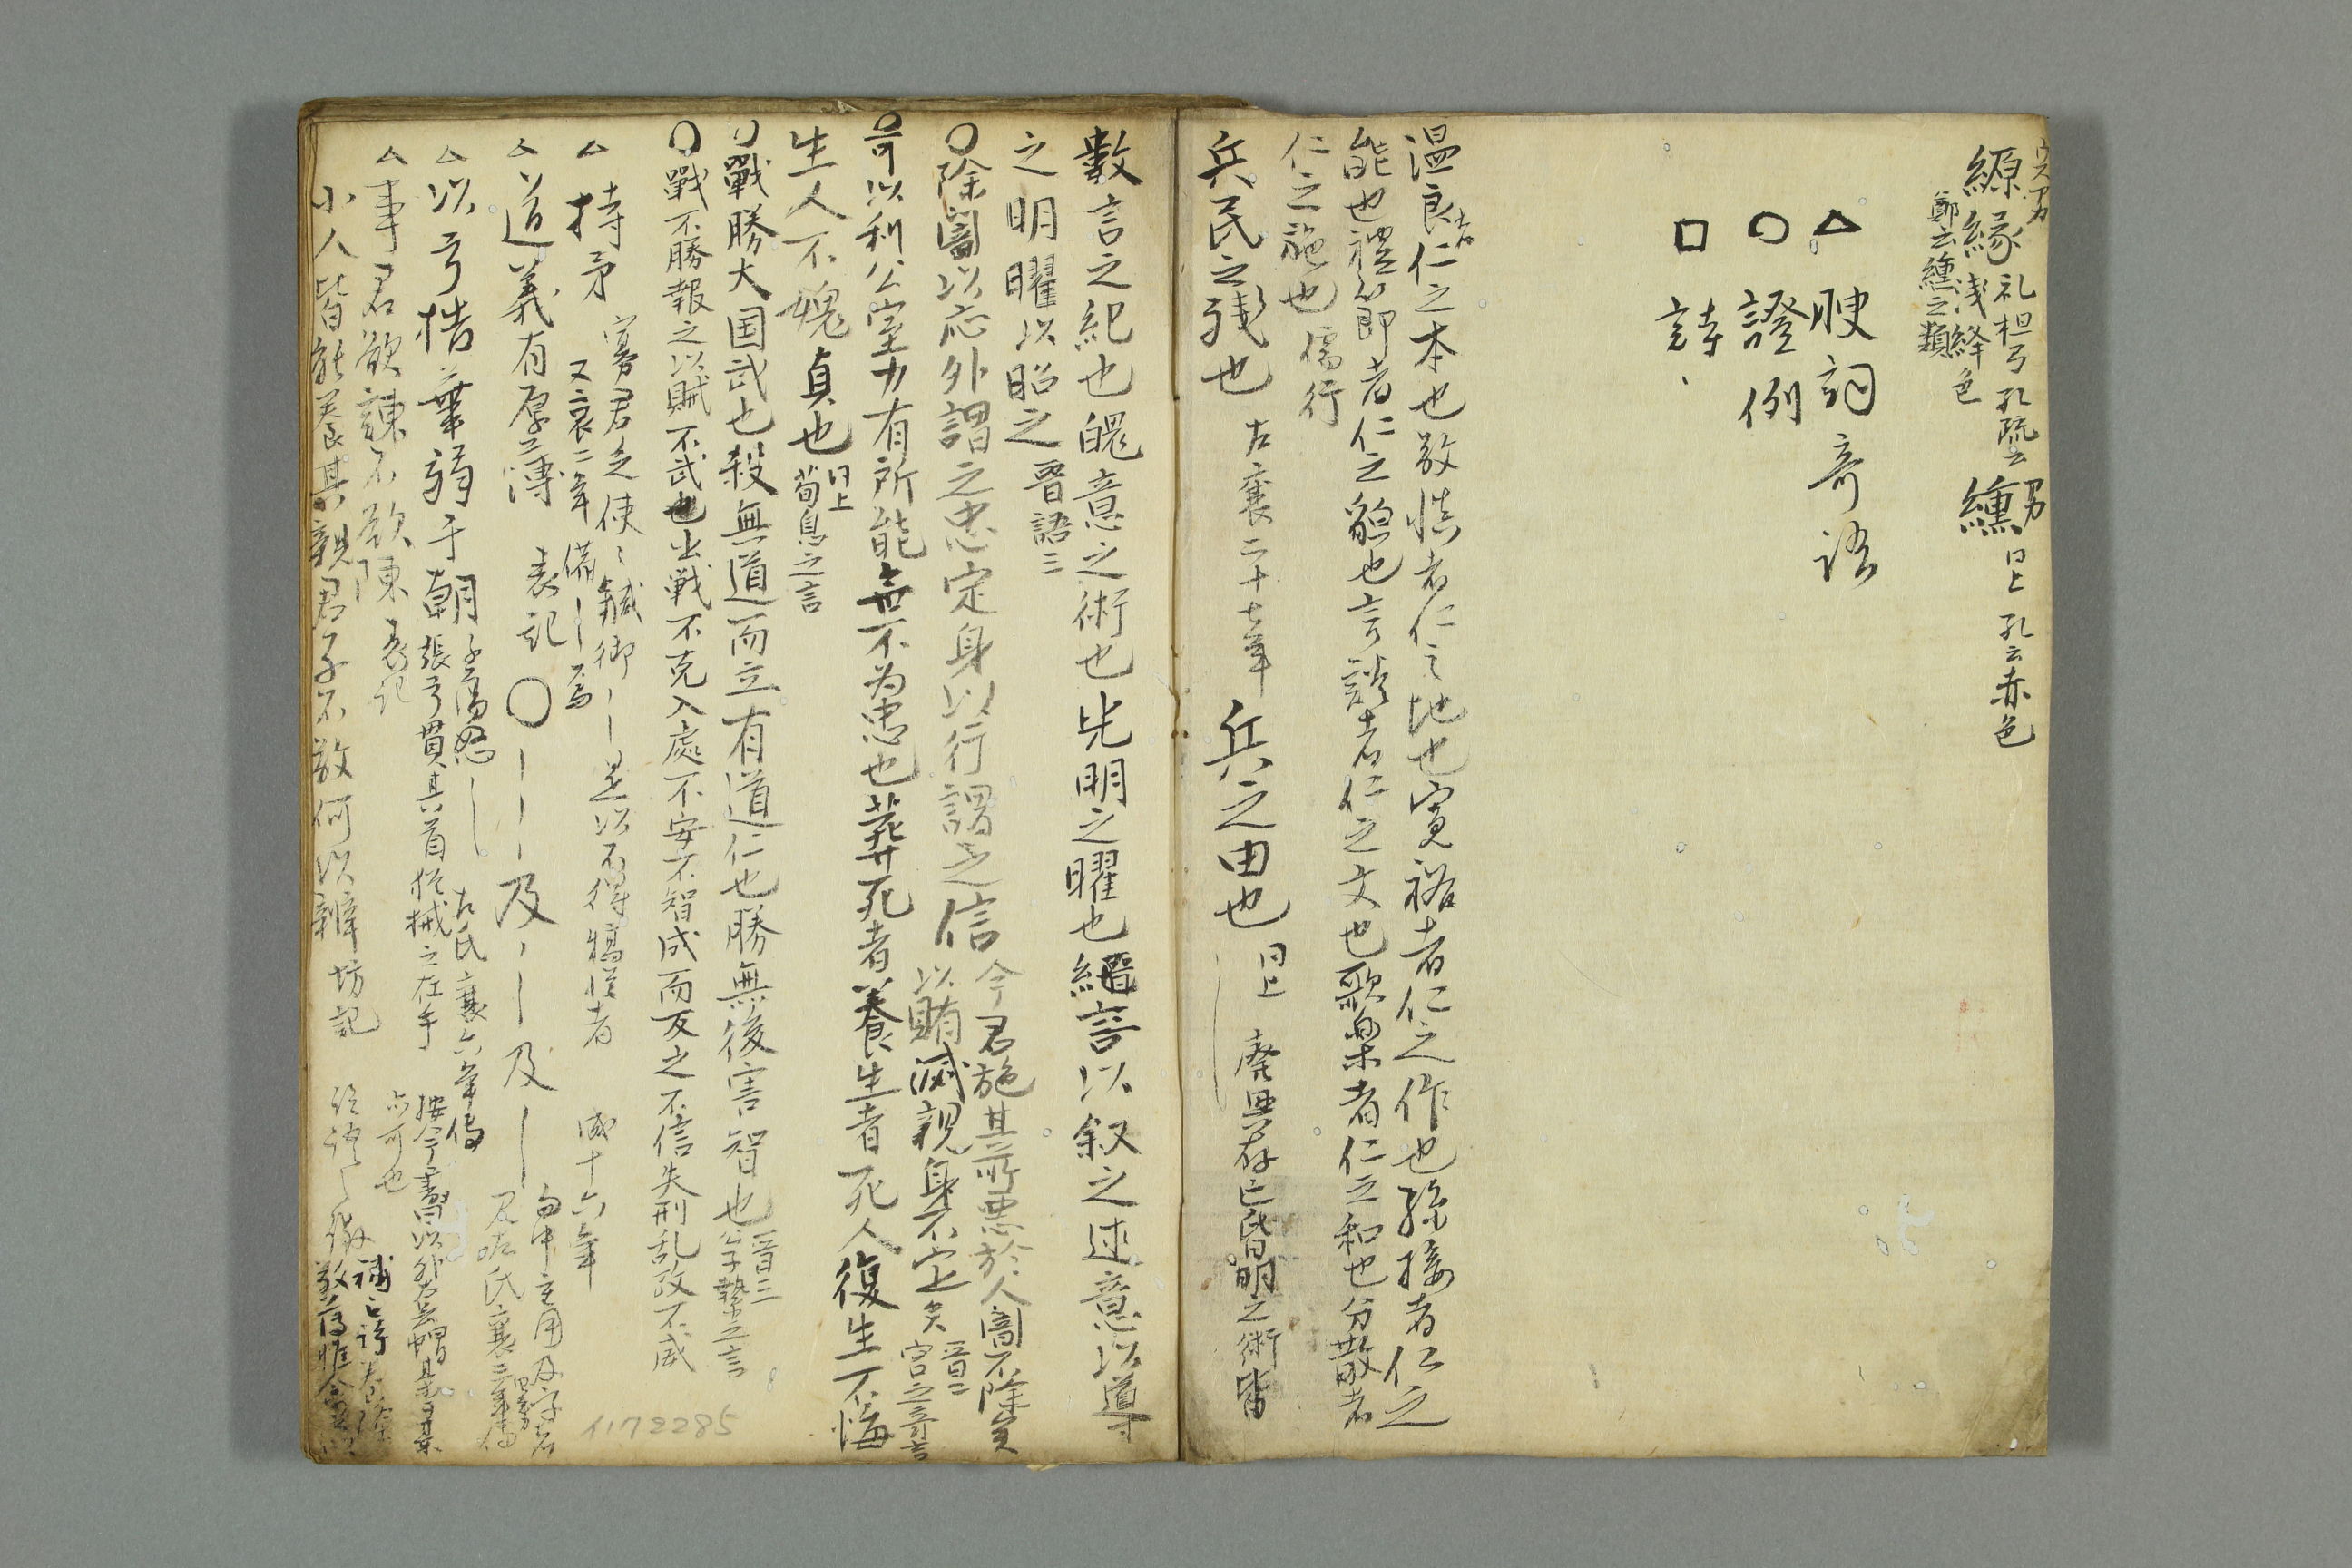 縓緣 浅絳色 礼檀弓孔疏云 纁 同上 孔云赤色
鄭云纁之類
△ 腴詞奇語
○ 證例
□ 詩
温良者仁之本也敬慎者仁之地也寛裕者仁之作也孫接者仁之
能也禮節者仁之貌也言談者仁之文也歌楽者仁之和也分散者
仁之施也 儒行
兵民之残也 左襄二十七年 兵之由也 同上 廃興存亡昏明之術皆
數言之紀也 意之術也光明之曜也 言以叙之述意以導
之明曜以昭之 晋語三
○除闇以応外謂之忠定身以行謂之信 今君施其所悪於人闇不除矣
以賄滅親身不定矣 晋二 宮之奇言
○可以利公室力有所能無不为忠也葬死者養生者死人復生不悔
生人不媿貞也 同上 荀息之言
○戰勝大国武也殺無道而立有道仁也勝無後害智也 晋三 公子縶之言
○戰不勝報之以賊不武也出戦不克入處不安不智成而反之不信失刑乱政不威
△持矛 寡君乏使使鍼御｜｜是以不得犒従者 成十六年
又哀二年 備｜｜焉
△道義有厚薄 表記 ○｜｜｜及｜｜及｜ 句中主用及字者
左氏襄三年傳
△以弓梏華弱于朝 子蕩怒｜ 左氏襄六年傳
張弓貫其首 械之在手
亦可也
△事君欲諫不欲陳 表記
小人皆能養其親君子不敬何以辨 坊記
補亡詩